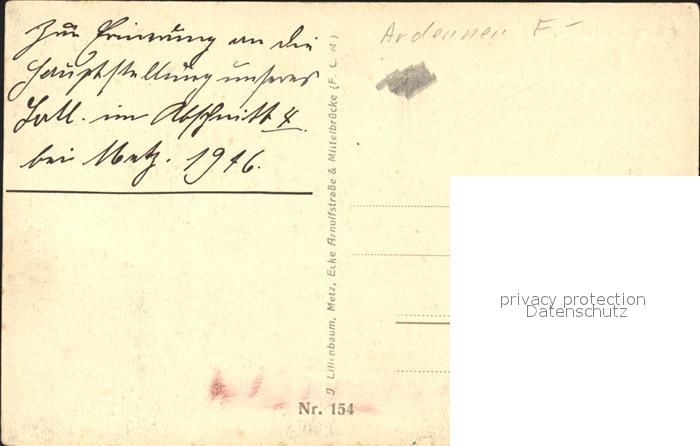 Zur Erinnerung an die
Hauptstellung unseres
Batl. im Abschnitt 4
bei Metz. 1916.
Ardennen F.-
J. Lilienbaum, Metz, Ecke Arnulfstraße & Mittelbrücke (F. C. M.)
privacy protection
Datenschutz
Nr. 154